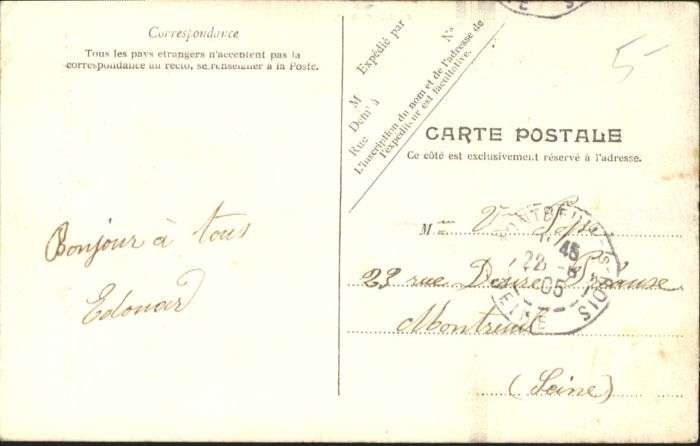 Correspondance
Tous les pays etrangers n'acceptent pas la
correspondance au recto, se renseigner à la Poste.
Bonjour à tous
Edouard
Expédié par
M
Demt à
Rue
No
L'inscription du nom et de l'adresse de
l'expéditeur est facultative.
5-
CARTE POSTALE
Ce côté est exclusivement réservé à l'adresse.
Mme V
23 rue Désiré
Montreuil
(Seine)
MONTREUIL-S-BOIS
45
22
05
SEINE
E S